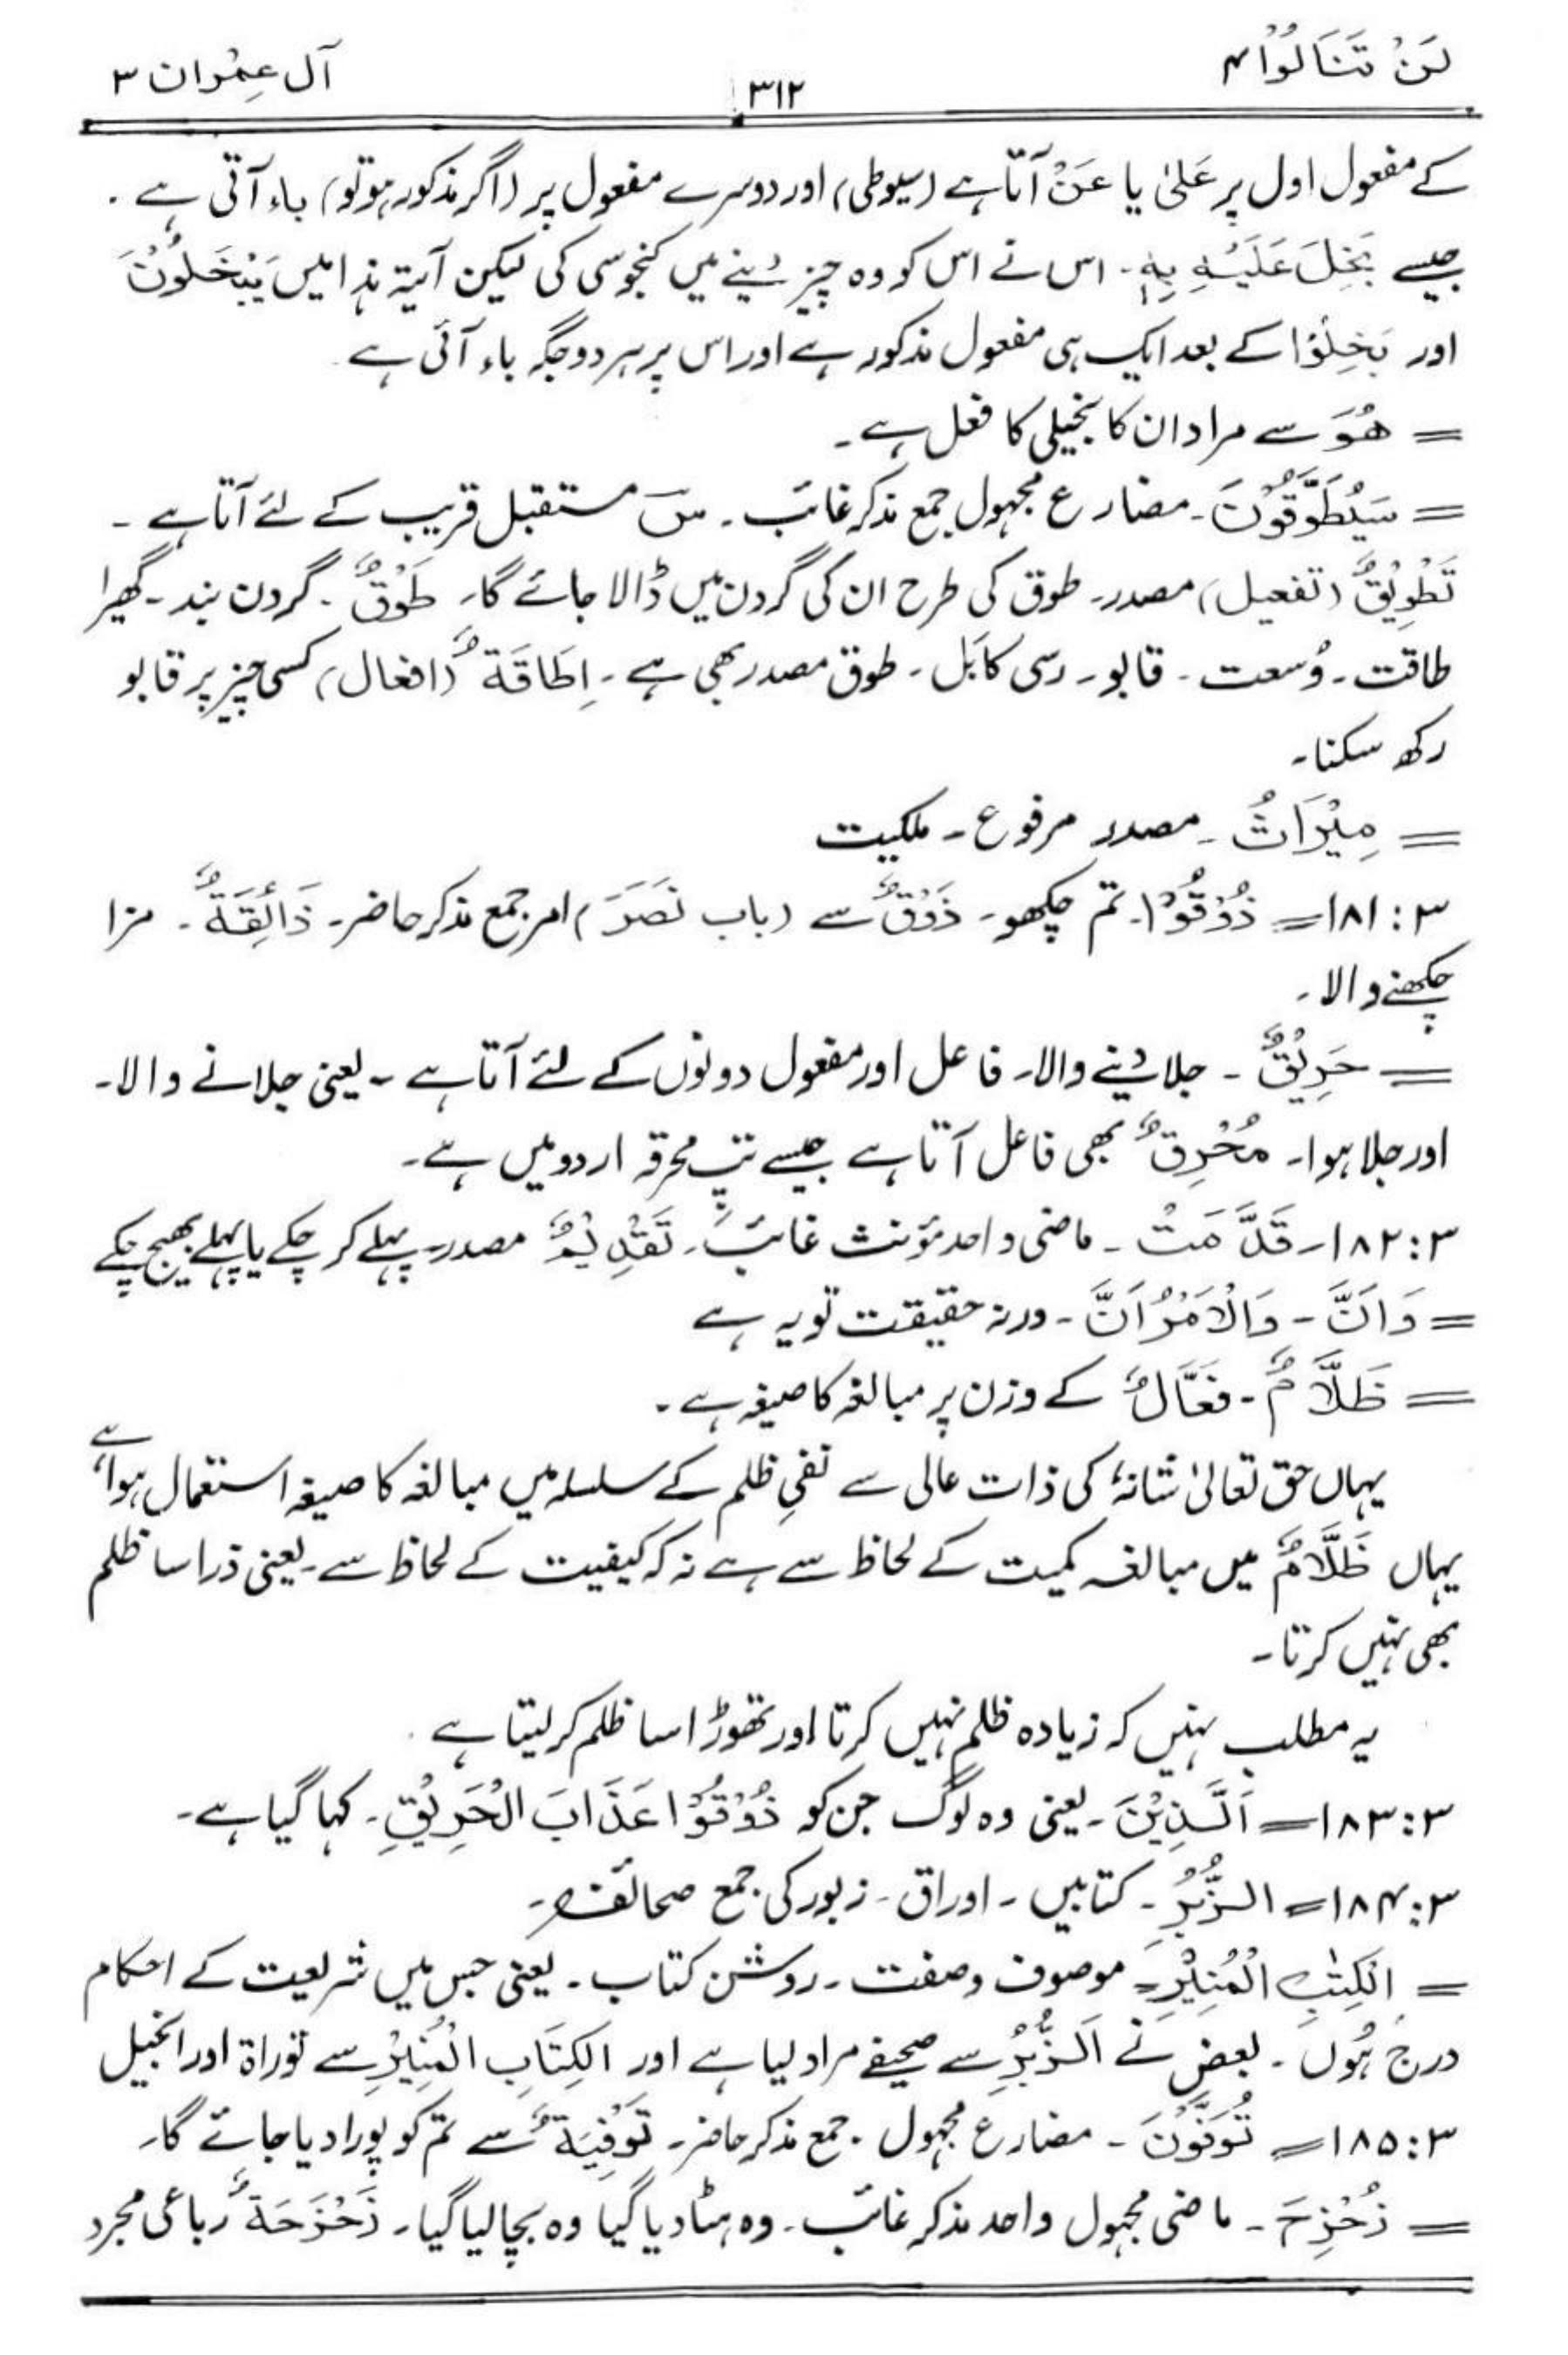 لَنْ تَنَالُوْا ۴
۳۱۲
آل عِمْران ۳
کے مفعول اول پر عَلیٰ یا عَنْ آتا ہے (سیوطی) اور دوسرے مفعول پر (اگر مذکور ہو تو) باء آتی ہے .
جیسے بَخِلَ عَلَیْہِ بِہٖ۔ اس نے اس کو وہ چیز دینے میں کنجوسی کی لیکن آیۃ ہذا میں یَبْخَلُوْنَ
اور بَخِلُوْا کے بعد ایک ہی مفعول مذکور ہے اور اس پر ہر دو جگہ باء آئی ہے
= ھُوَ سے مراد ان کا بخیلی کا فعل ہے۔
= سَیُطَوَّقُوْنَ۔ مضارع مجہول جمع مذکر غائب۔ سَ مستقبل قریب کے لئے آتا ہے ۔
تَطْوِیْقٌ (تفعیل) مصدر۔ طوق کی طرح ان کی گردن میں ڈالا جائے گا۔ طَوْقٌ۔ گردن بند۔ گھیرا
طاقت۔ وُسعت۔ قابو۔ رسی کا بَل۔ طوق مصدر بھی ہے۔ اِطَاقَۃٌ (افعال) کسی چیز پر قابو
رکھ سکنا۔
= مِیْرَاثُ۔ مصدر مرفوع۔ ملکیت
۳:۱۸۱= ذُوْقُوْا۔ تم چکھو۔ ذَوْقٌ سے (باب نَصَرَ) امر جمع مذکر حاضر۔ ذَائِقَۃٌ۔ مزا
چکھنے والا۔
= حَرِیْقٌ ۔ جلا دینے والا۔ فاعل اور مفعول دونوں کے لئے آتا ہے ۔ یعنی جلانے والا۔
اور جلا ہوا۔ مُحْرِقٌ بھی فاعل آتا ہے جیسے تپِ محرقہ اردو میں ہے۔
۳:۱۸۲۔ قَدَّمَتْ ۔ ماضی واحد مؤنث غائب۔ تَقْدِیْمٌ مصدر۔ پہلے کر چکے یا پہلے بھیج چکے
= وَاَنَّ ۔ وَالْاَمْرُ اَنَّ ۔ ورنہ حقیقت تو یہ ہے
= ظَلَّامٌ۔ فَعَّالٌ کے وزن پر مبالغہ کا صیغہ ہے۔
یہاں حق تعالیٰ شانہٗ کی ذات عالی سے نفیِ ظلم کے سلسلہ میں مبالغہ کا صیغہ استعمال ہوا ہے
یہاں ظَلَّامٌ میں مبالغہ کمیت کے لحاظ سے ہے نہ کہ کیفیت کے لحاظ سے۔ یعنی ذرا سا ظلم
بھی نہیں کرتا۔
یہ مطلب نہیں کہ زیادہ ظلم نہیں کرتا اور تھوڑا سا ظلم کر لیتا ہے .
۳:۱۸۳= اَلَّذِیْنَ۔ یعنی وہ لوگ جن کو ذُوْقُوْا عَذَابَ الْحَرِیْقِ۔ کہا گیا ہے۔
۳:۱۸۴= الزُّبُرِ۔ کتابیں۔ اوراق۔ زبور کی جمع صحائف۔
= اَلْکِتٰبِ الْمُنِیْرِ۔ موصوف وصفت۔ روشن کتاب۔ یعنی جس میں شریعت کے احکام
درج ہُوں ۔ بعض نے اَلزُّبُرِ سے صحیفے مراد لیا ہے اور الکِتَابِ الْمُنِیْرِ سے توراۃ اور انجیل
۳:۱۸۵= تُوَفَّوْنَ ۔ مضارع مجہول ۔ جمع مذکر حاضر۔ تَوْفِیَۃٌ سے تم کو پورا دیا جائے گا۔
= زُحْزِحَ ۔ ماضی مجہول واحد مذکر غائب۔ وہ ہٹا دیا گیا وہ بچا لیا گیا۔ زَحْزَحَۃٌ رباعی مجرد